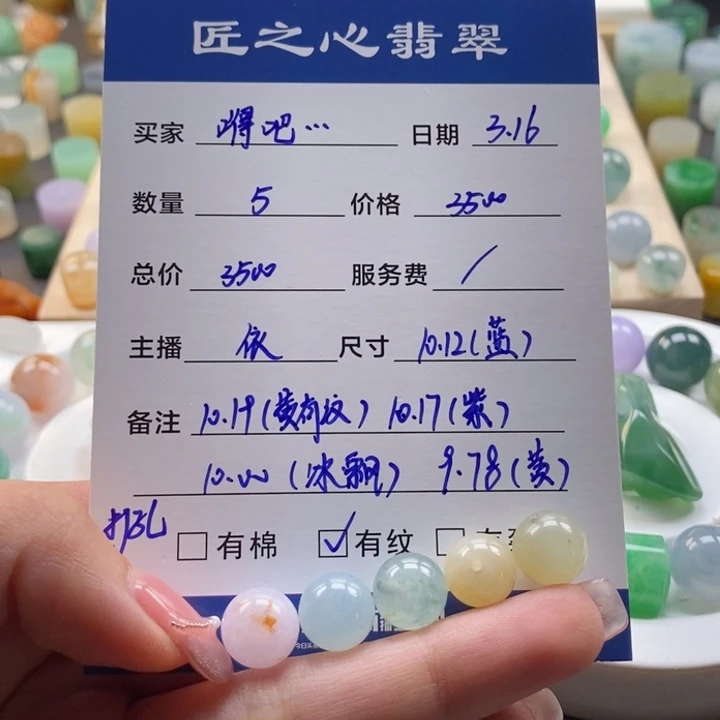 匠之心翡翠
买家 嘚吧… 日期 3.16
数量 5 价格 3500
总价 3500 服务费 /
主播 依 尺寸 10.12(蓝)
备注 10.19(黄有纹) 10.17(紫)
10.00(冰飘) 9.78(黄)
打孔 □有棉 ☑有纹 □有